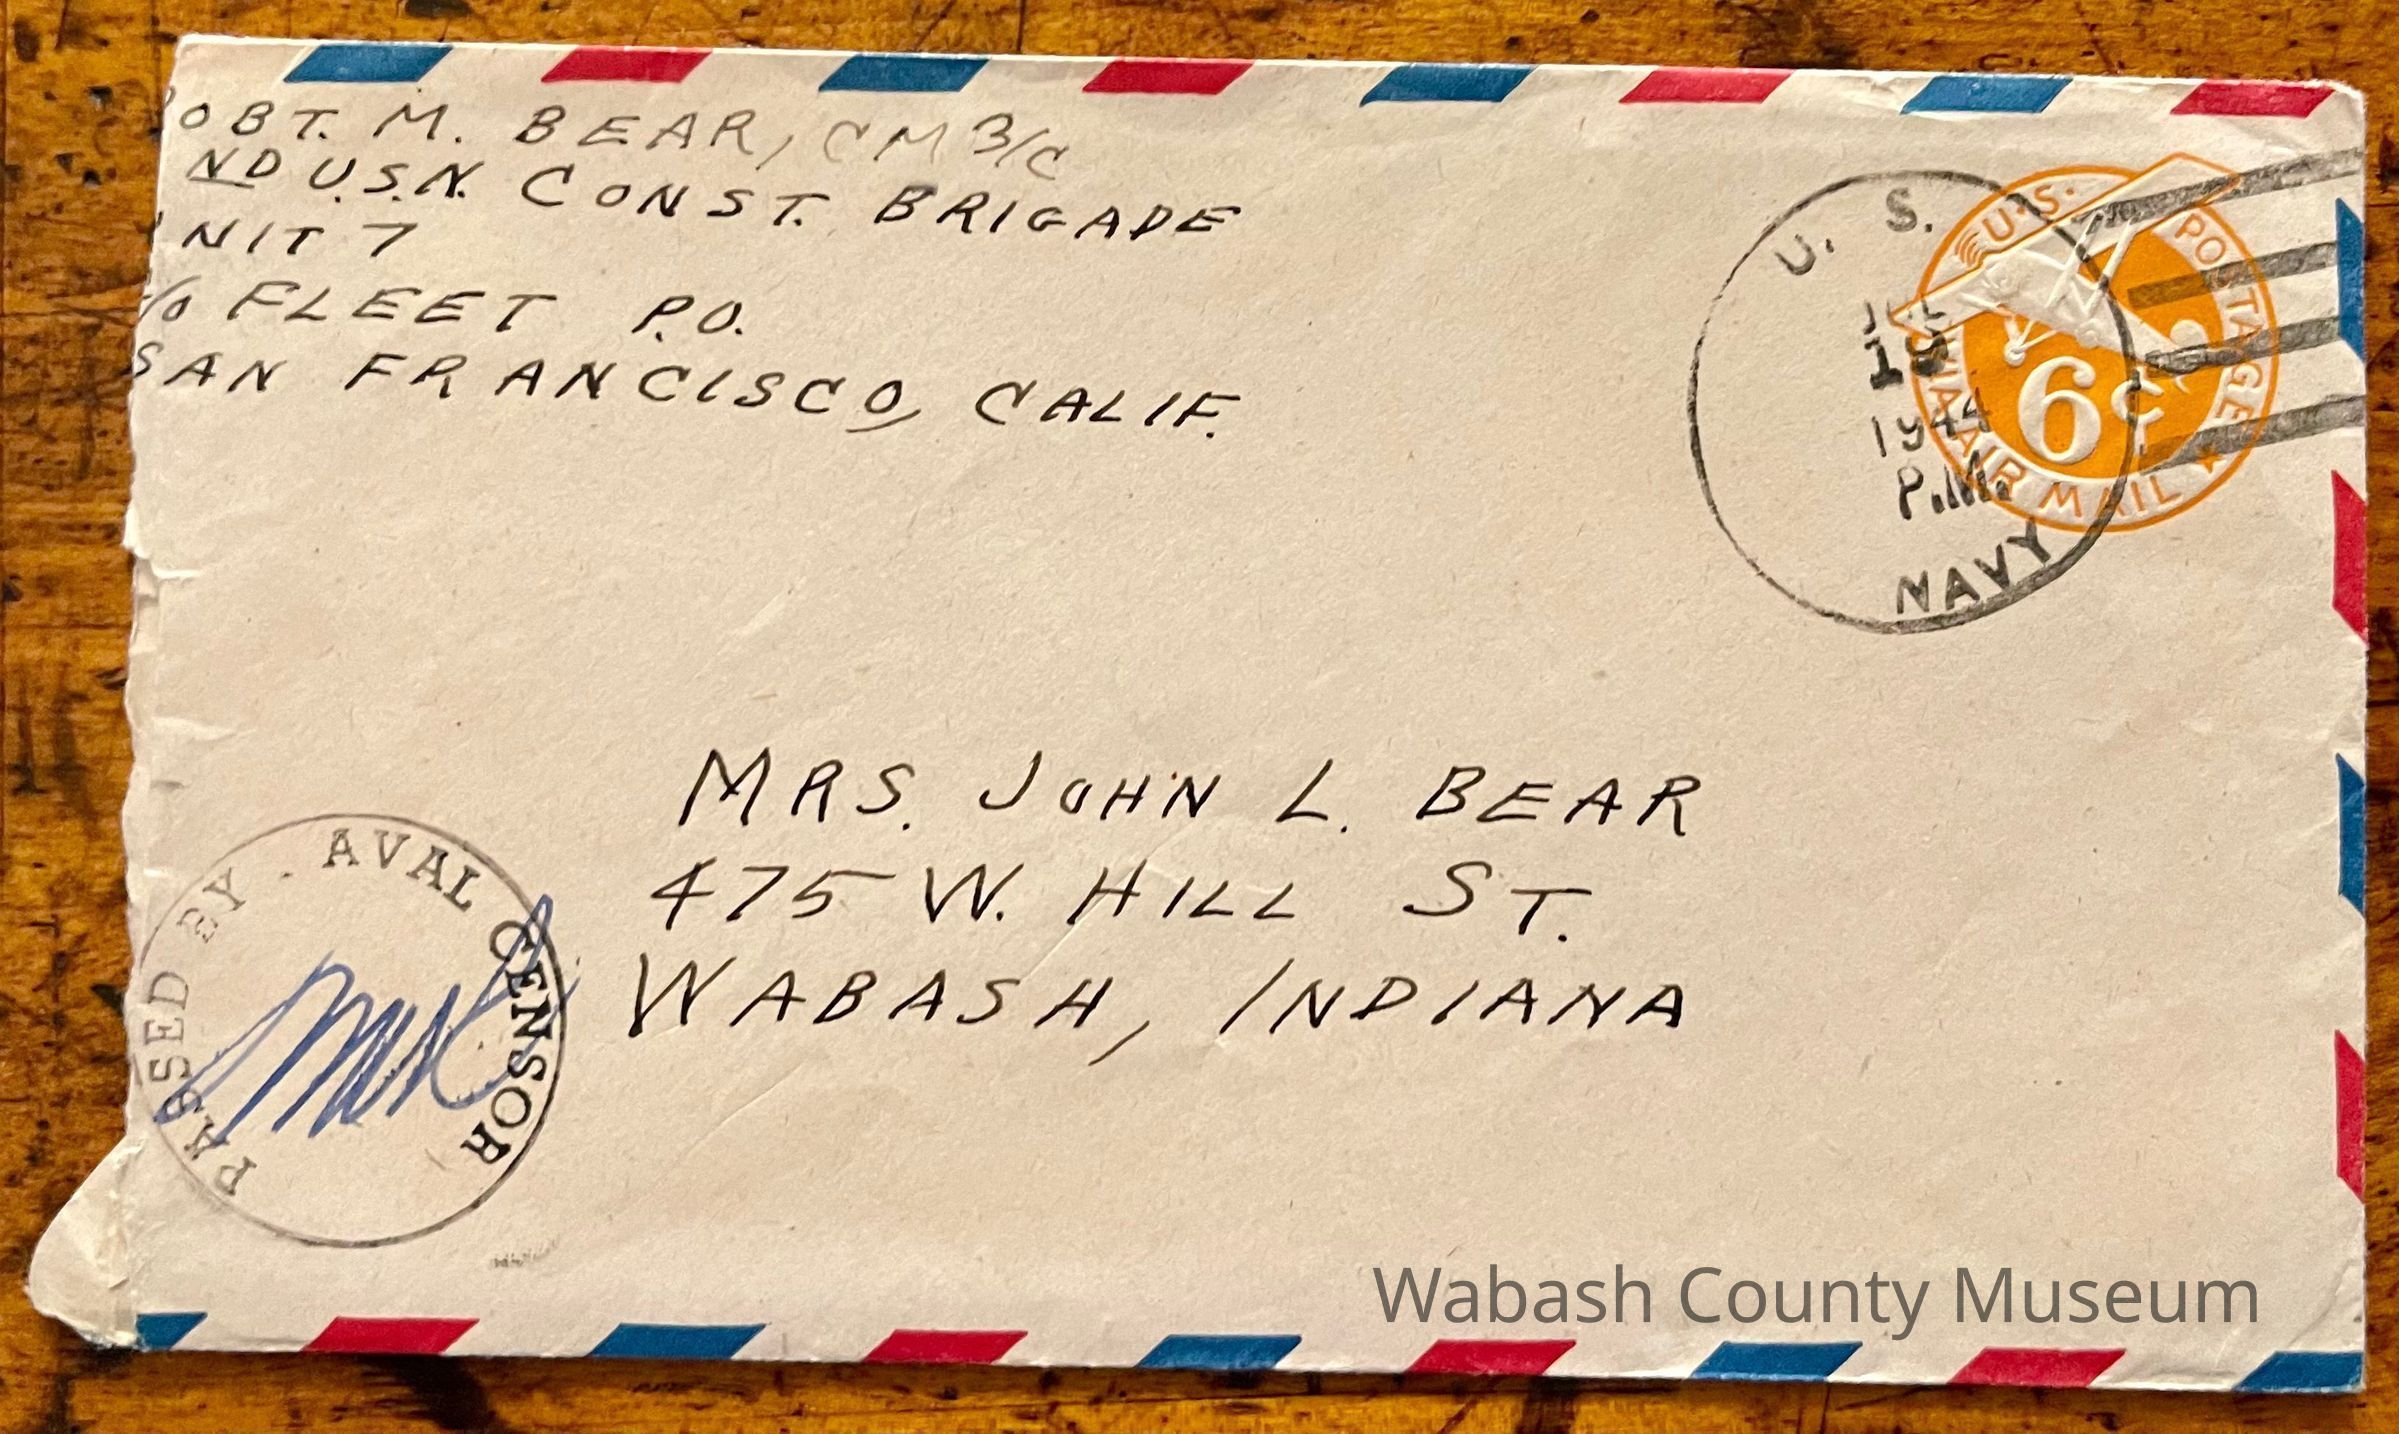 OBT. M. BEAR, CM 3/C
ND U.S.N. CONST. BRIGADE
NIT 7
/O FLEET P.O.
SAN FRANCISCO, CALIF.
U. S.
18
1944
P.M.
NAVY
U.S. POSTAGE
VIA AIR MAIL
6¢
MRS. JOHN L. BEAR
475 W. HILL ST.
WABASH, INDIANA
PASSED BY AVAL CENSOR
Wabash County Museum